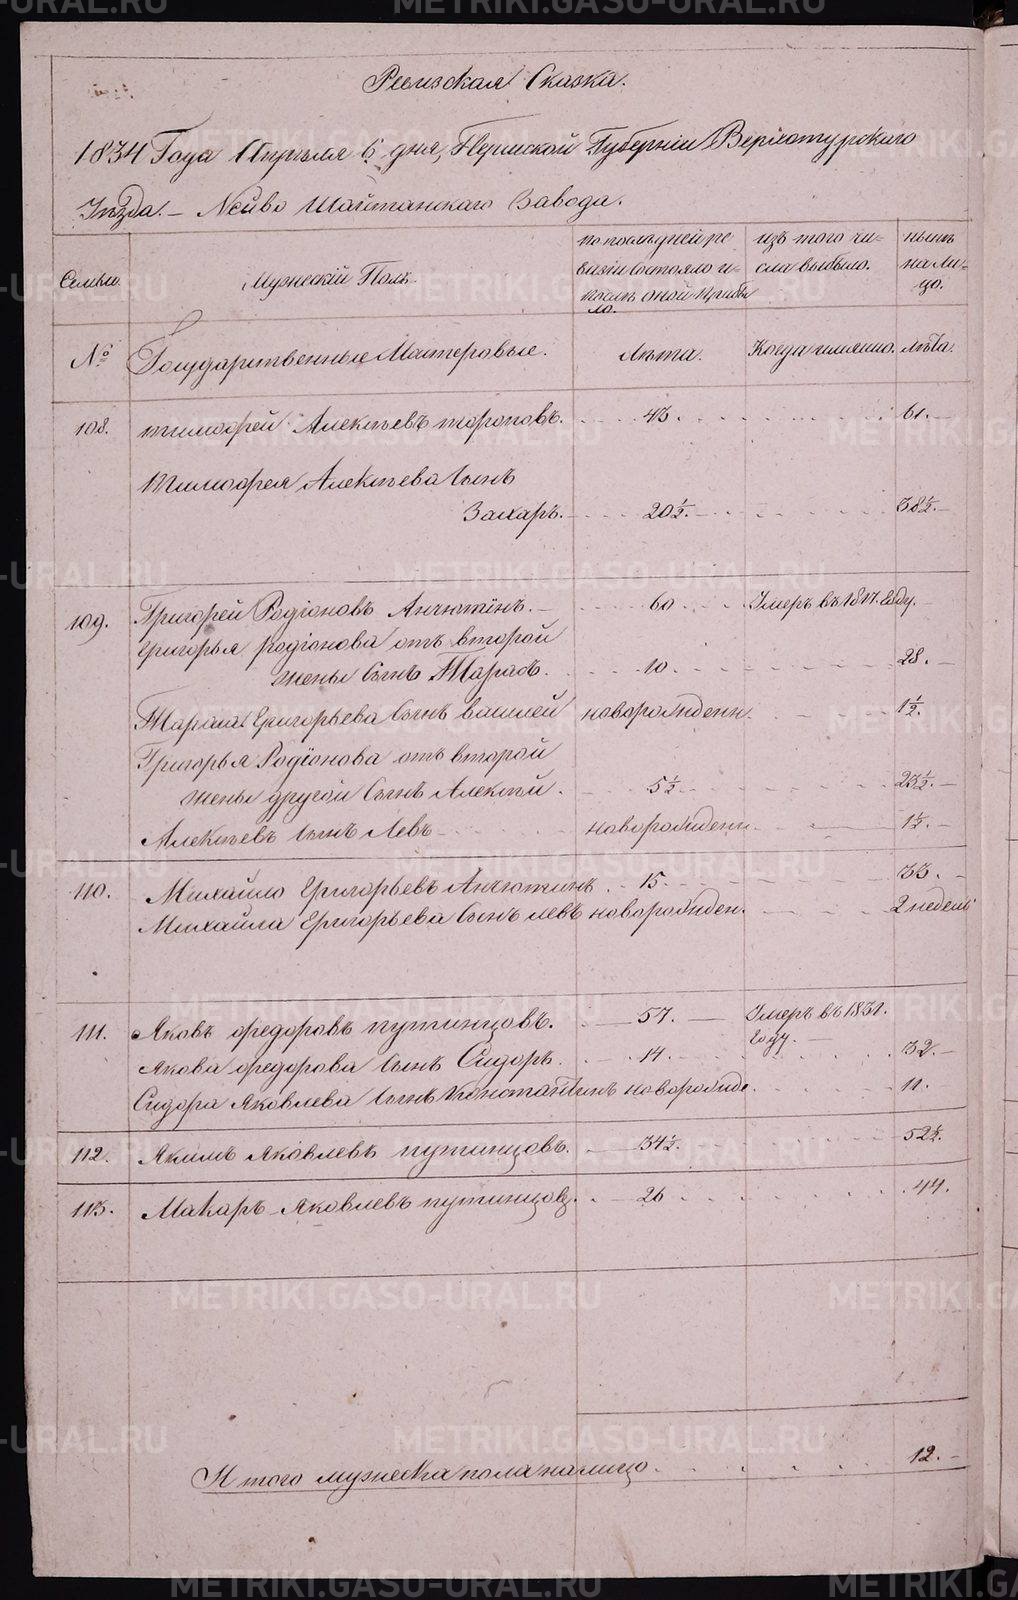 Ревизская Сказка.
1834 Года Апреля 6 дня, Пермской Губернiи Верхотурского
Уезда. – Нейво Шайтанскаго Завода.
Семьи.
Мужескiй Полъ.
по последней ре
визiи состояло и
после оной прибы
ло.
изъ того чи=
сла выбыло.
ныне
на ли=
цо.
№
Государственные Мастеровые.
Лета.
Когда имянно.
Лета.
108. тимофей Алексеевъ тороповъ. 43. 61.
Тимофея Алексеева Сынъ
Захаръ. 20½. 38½.
109. Григорей Родiоновъ Анчютинъ. 60 Умеръ въ 1817. Году.
Григорья родiонова отъ второй
жены Сынъ Тарасъ. 10. 28.
Тараса Григорьева Сынъ василей новорожденн. 1½.
Григорья Родiонова отъ второй
жены другой Сынъ Алексей. 5½ 23½.
Алексеевъ Сынъ Левъ новорожденн. 1½.
110. Михайло Григорьевъ Анчютинъ. 15. 33.
Михайла Григорьева Сынъ левъ новорожден. 2 недели
111. Яковъ федоровъ путинцовъ. 57. Умеръ въ 1831.
Году.
Якова федорова сынъ Сидоръ. 14. 32.
Сидора Яковлева Сынъ Константинъ новорожде. 11.
112. Якимъ Яковлевъ путинцовъ. 34½. 52½.
113. Макаръ Яковлевъ путинцовъ. 26 44.
И того мужеска пола налицо 12.
METRIKI.GASO-URAL.RU